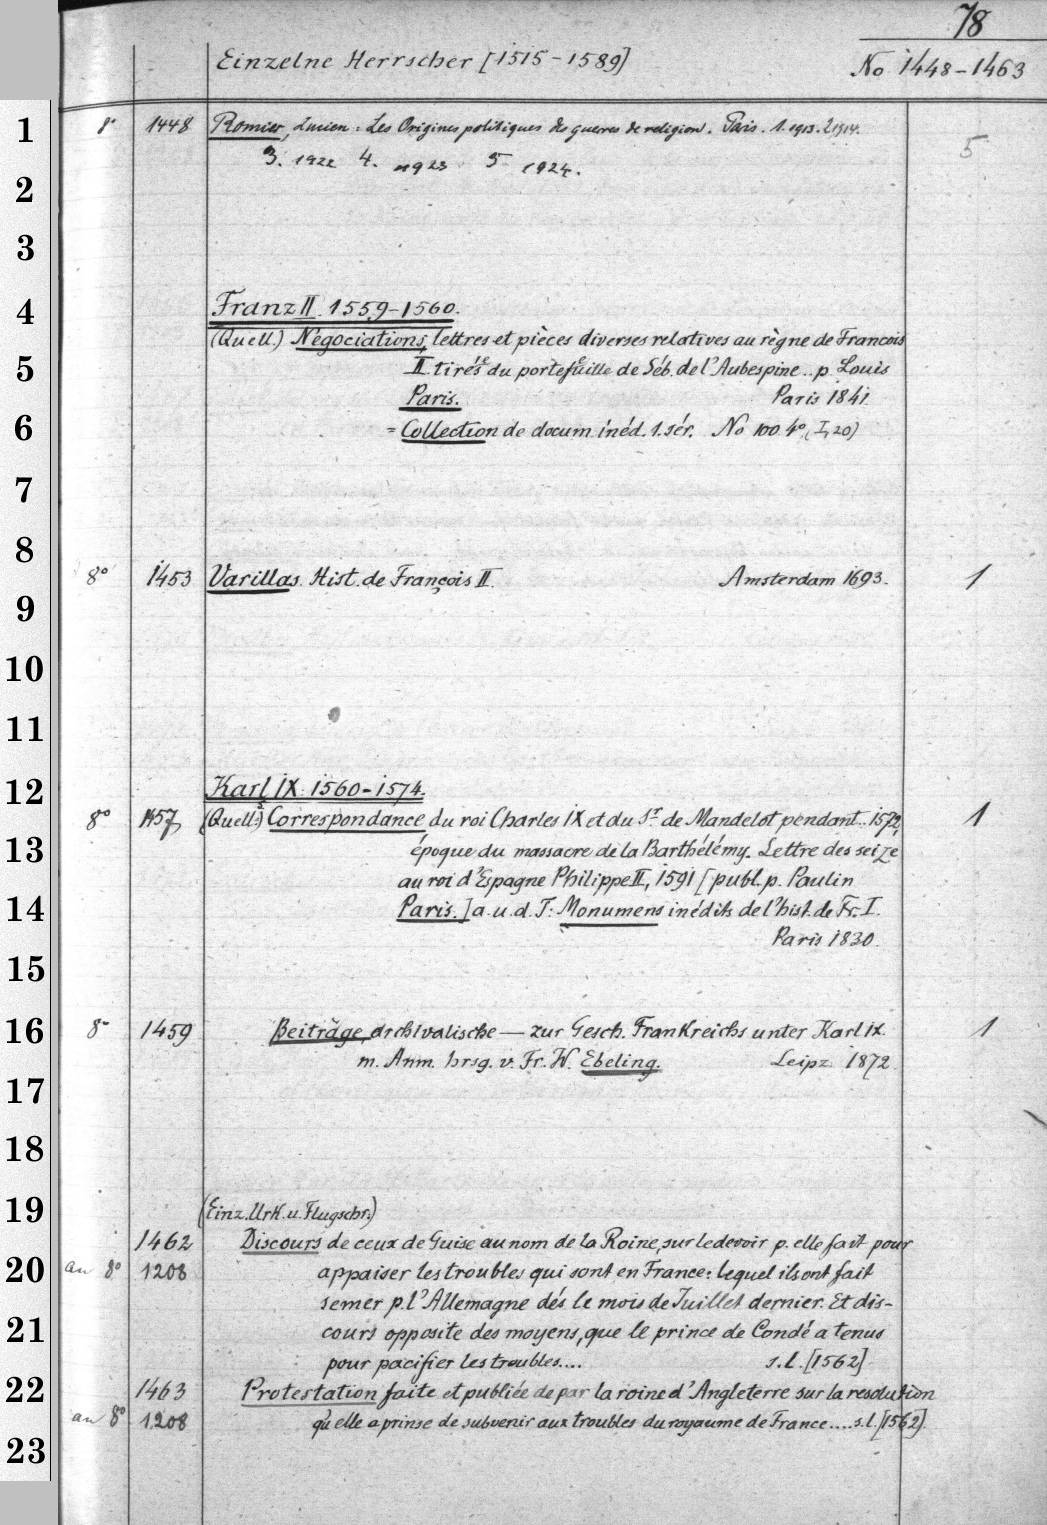 78
Einzelne Herrscher [1515-1589]
No 1448-1463
1 8° 1448 Romier, Lucien: Les Origines politiques des guerres de religion. Paris. 1. 1913. 2 1914. 5
3. 1922 4. 1923 5 1924.
2
3
4 Franz II. 1559-1560.
(Quell.) Négociations, lettres et pièces diverses relatives au règne de Francois
5 II. tirés du portefeuille de Séb. de l'Aubespine.. p. Louis
Paris. Paris 1841
6 = Collection de docum inéd. 1. sér. No 100 4°, (I, 20)
7
8
8° 1453 Varillas. Hist. de François II. Amsterdam 1693. 1
9
10
11
12 Karl IX. 1560-1574.
8° 1457 (Quell.) Correspondance du roi Charles IX et du Sr de Mandelot pendant.. 1572, 1
13 époque du massacre de la Barthélémy. Lettre des seize
au roi d'Espagne Philippe II, 1591 [publ. p. Paulin
14 Paris.] a. u. d. T: Monumens inédits de l'hist. de Fr. I.
Paris 1830.
15
16 8° 1459 Beiträge, archivalische — zur Gesch. Frankreichs unter Karl IX. 1
m. Anm. hrsg. v. Fr. W. Ebeling. Leipz. 1872.
17
18
19 (Einz. Urk. u. Flugschr.)
1462 Discours de ceux de Guise au nom de la Roine, sur le devoir p. elle fait pour
20 an 8° 1208 appaiser les troubles qui sont en France: lequel ils ont fait
semer p. l'Allemagne dés le mois de Juillet dernier. Et dis-
21 cours opposite des moyens, que le prince de Condé a tenus
pour pacifier les troubles.... s. l. [1562]
22 1463 Protestation faite et publiée de par la roine d'Angleterre sur la resolution
an 8° 1208 qu'elle a prinse de subvenir aux troubles du royaume de France.... s. l. [1562]
23